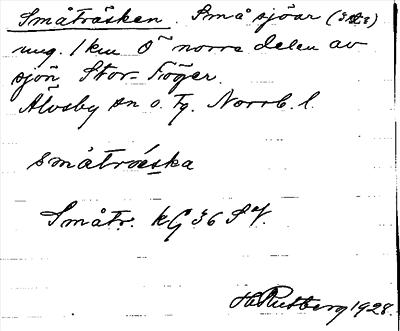 Småträsken. Små sjöar (3 st.)
ung. 1 km Ö norra delen av
sjön Stor-
Älvsby sn o. tg. Norrb. l.
småtrǽska
Småtr. kG 36 SV.
H Rutberg 1928.